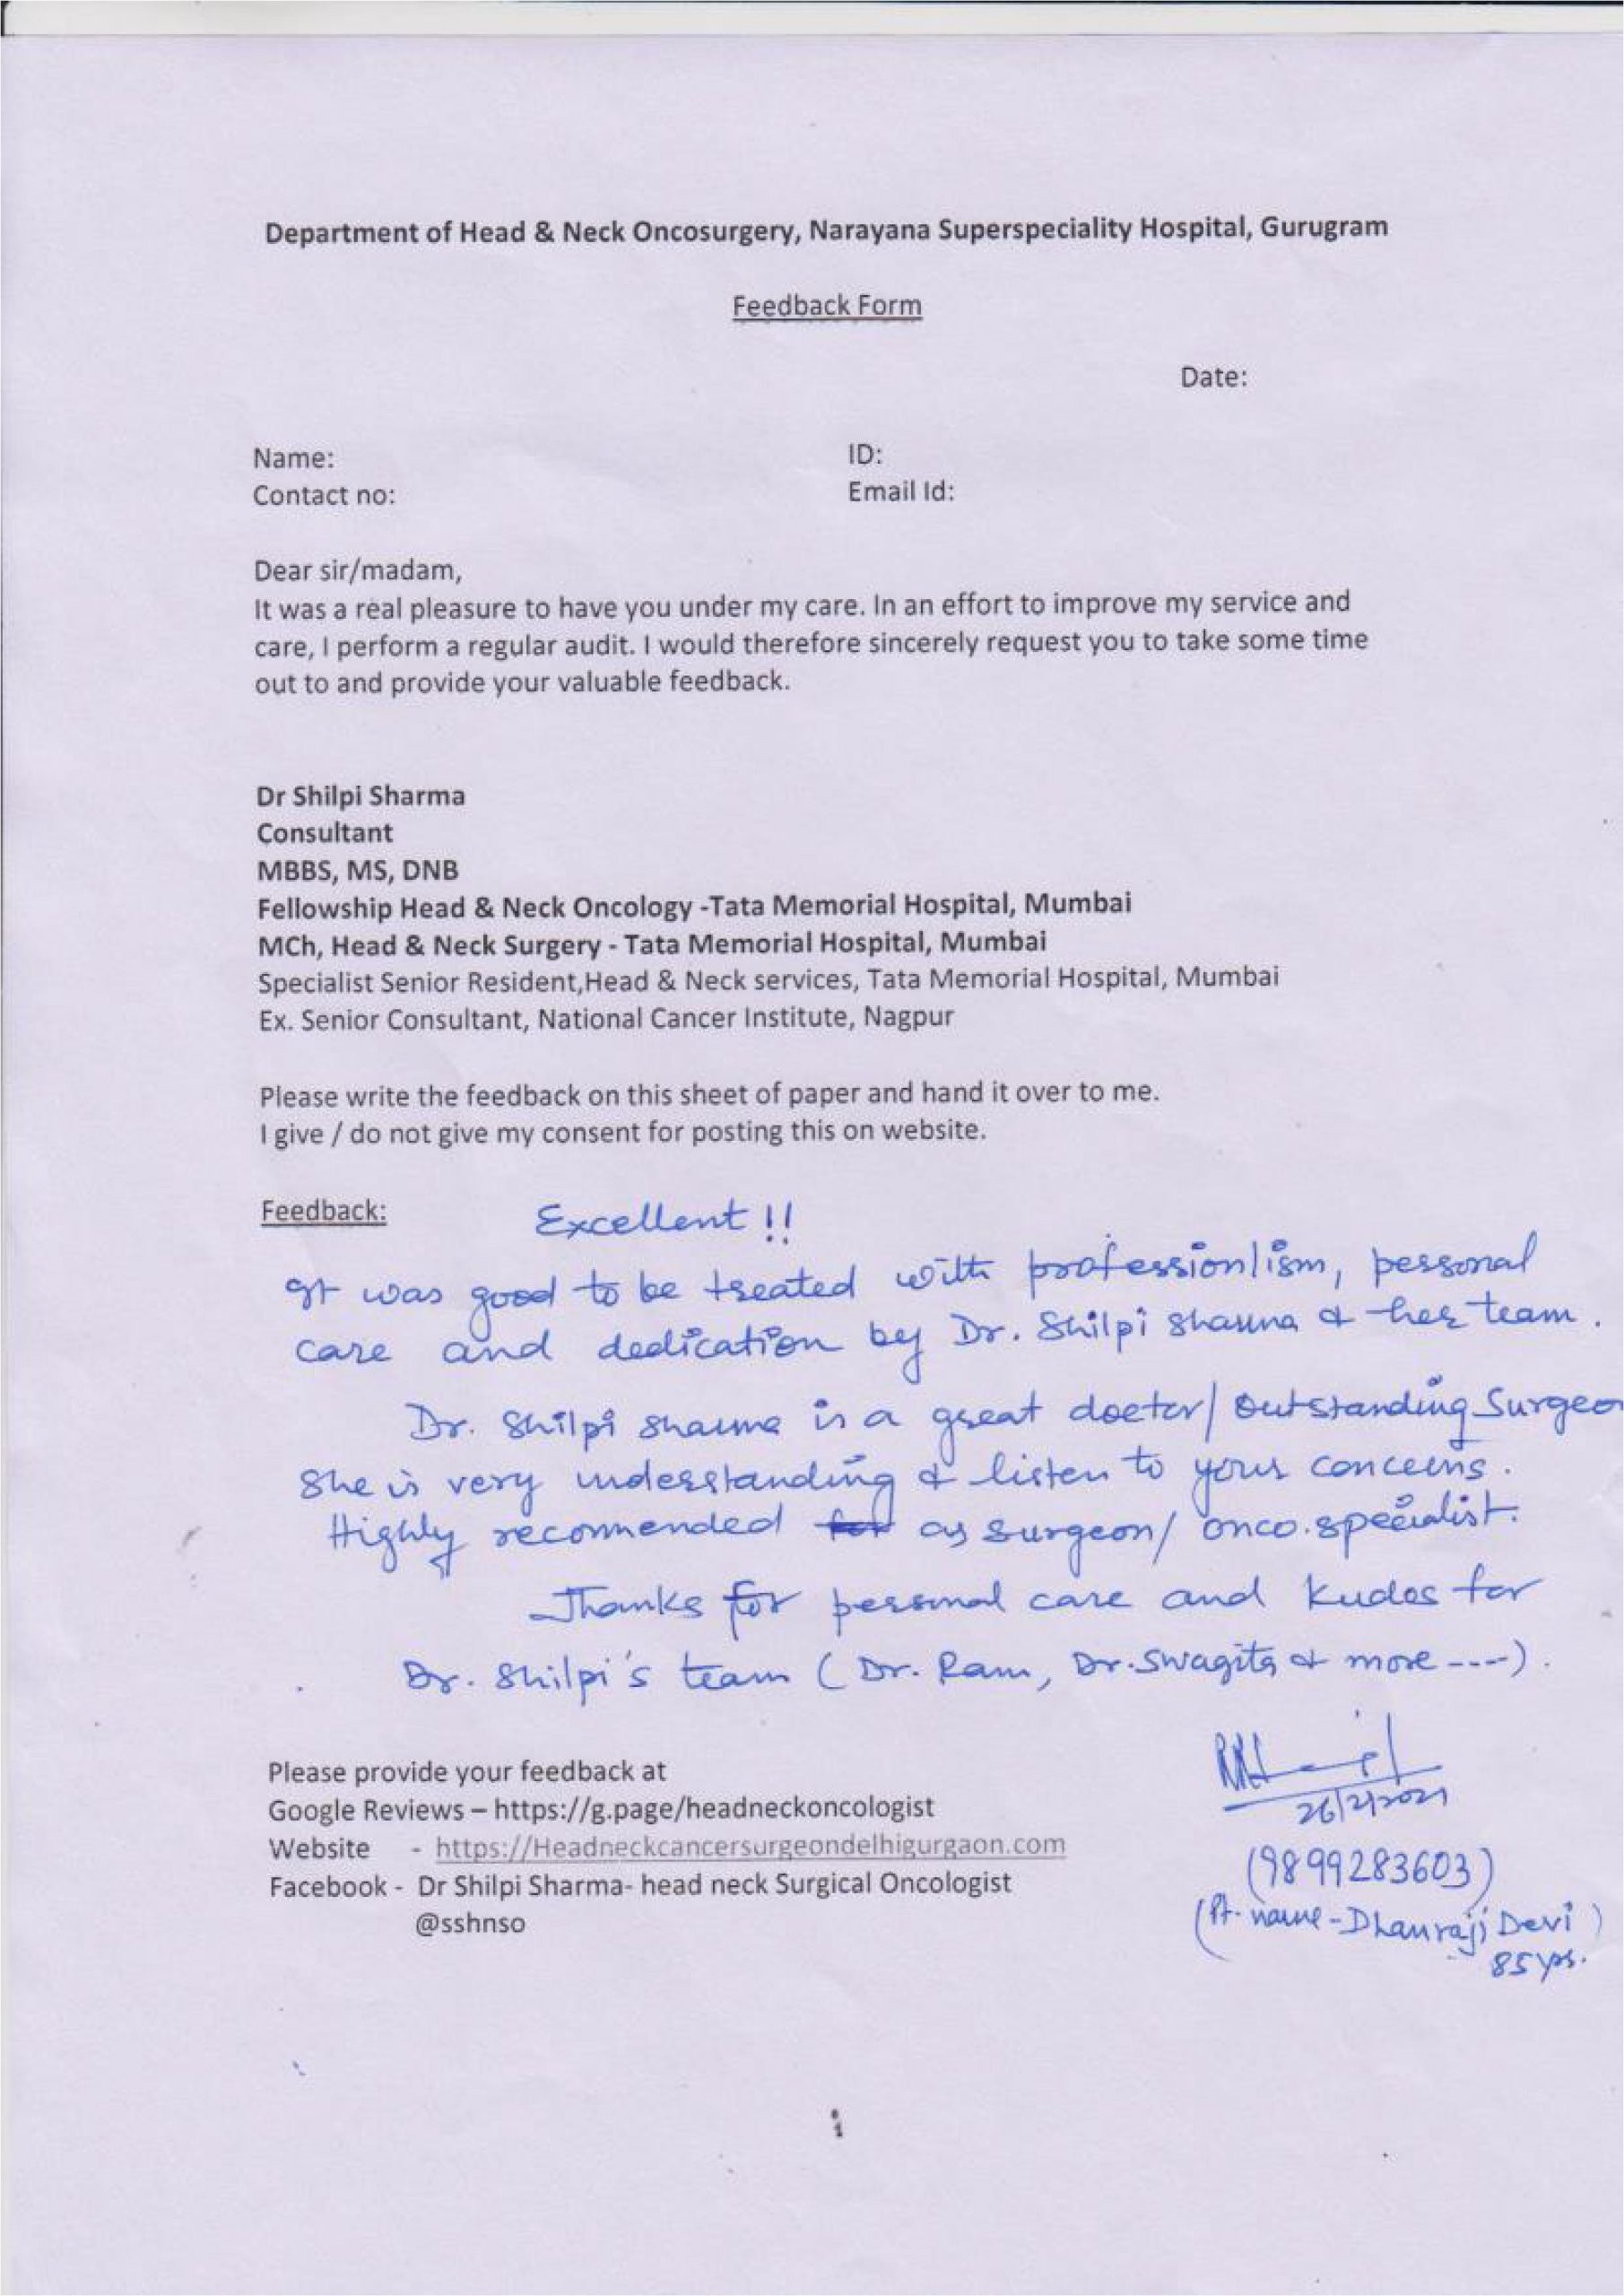 Department of Head & Neck Oncosurgery, Narayana Superspeciality Hospital, Gurugram
Feedback Form
Date:
Name: ID:
Contact no: Email Id:
Dear sir/madam,
It was a real pleasure to have you under my care. In an effort to improve my service and
care, I perform a regular audit. I would therefore sincerely request you to take some time
out to and provide your valuable feedback.
Dr Shilpi Sharma
Consultant
MBBS, MS, DNB
Fellowship Head & Neck Oncology -Tata Memorial Hospital, Mumbai
MCh, Head & Neck Surgery - Tata Memorial Hospital, Mumbai
Specialist Senior Resident,Head & Neck services, Tata Memorial Hospital, Mumbai
Ex. Senior Consultant, National Cancer Institute, Nagpur
Please write the feedback on this sheet of paper and hand it over to me.
I give / do not give my consent for posting this on website.
Feedback: Excellent !!
It was good to be treated with professionlism, personal
care and dedication by Dr. Shilpi Sharma & her team.
Dr. Shilpi Sharma is a great doctor/ Outstanding Surgeo
She is very understanding & listen to your concerns.
Highly recommended for as surgeon/ onco.specialist.
Thanks for personal care and kudos for
Dr. Shilpi's team (Dr. Ram, Dr. Swagita & more ----).
Please provide your feedback at
Google Reviews – https://g.page/headneckoncologist
26/2/2021
Website - https://Headneckcancersurgeondelhigurgaon.com
(9899283603)
Facebook - Dr Shilpi Sharma- head neck Surgical Oncologist
@sshnso
(Pt. name - Dhanraji Devi)
85 yrs.